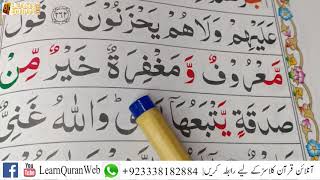 عَلَيْهِمْ وَلَا هُمْ يَحْزَنُوْنَ ﴿۲۶۲﴾ قَوْلٌ
مَّعْرُوْفٌ وَّمَغْفِرَةٌ خَيْرٌ مِّنْ
صَدَقَةٍ يَّتْبَعُهَاۤ ؕ وَاللّٰهُ غَنِیٌّ
LearnQuranWeb +923338182884 آنلائن قرآن کلاسز کے لیے رابطہ کریں